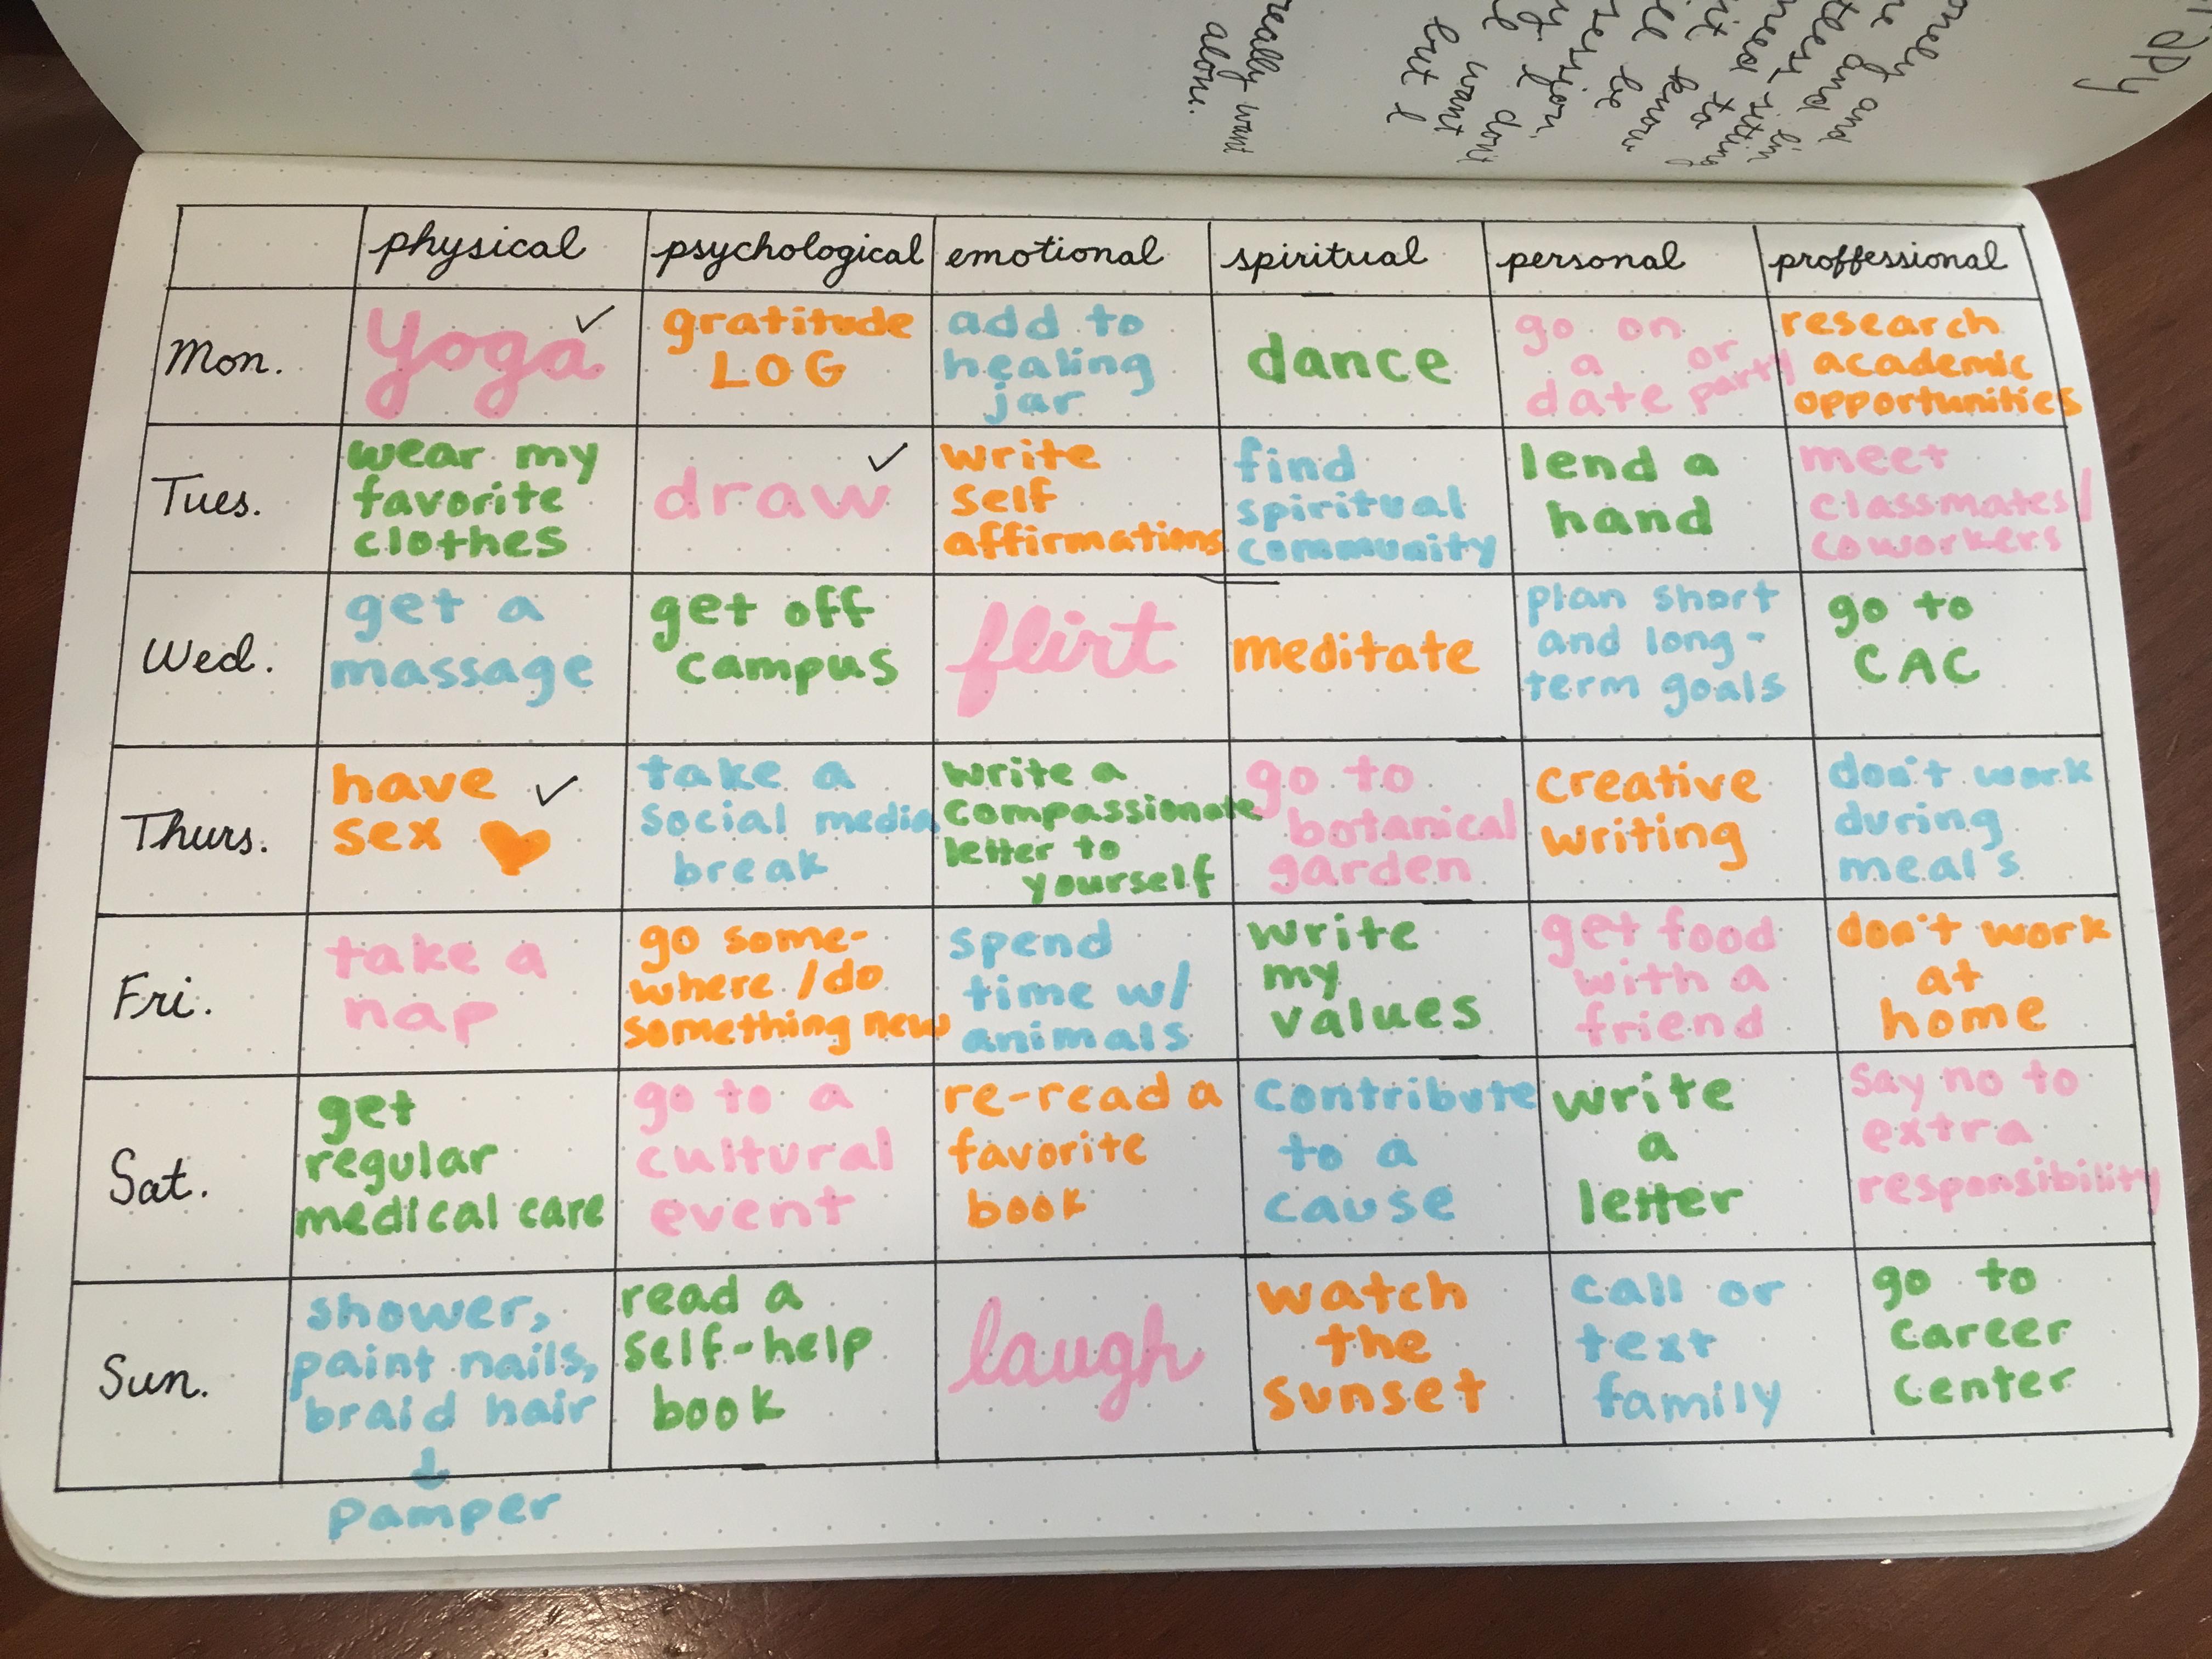 really want
alone.
want
but I
don't
know
be
need to
and
physical psychological emotional spiritual personal proffessional
Mon.
yoga ✓
gratitude
LOG
add to
healing
jar
dance
go on
a or
date party
research
academic
opportunities
Tues.
wear my
favorite
clothes
draw ✓
write
self
affirmations
find
spiritual
community
lend a
hand
meet
classmates/
coworkers
Wed.
get a
massage
get off
campus
flirt
meditate
plan short
and long-
term goals
go to
CAC
Thurs.
have
sex ✓
take a
social media
break
write a
compassionate
letter to
yourself
go to
botanical
garden
creative
writing
don't work
during
meal's
Fri.
take a
nap
go some-
where /do
something new
spend
time w/
animals
write
my
values
get food
with a
friend
don't work
at
home
Sat.
get
regular
medical care
go to a
cultural
event
re-read a
favorite
book
contribute
to a
cause
write
a
letter
say no to
extra
responsibility
Sun.
shower,
paint nails,
braid hair
pamper
read a
self-help
book
laugh
watch
the
sunset
call or
text
family
go to
career
center